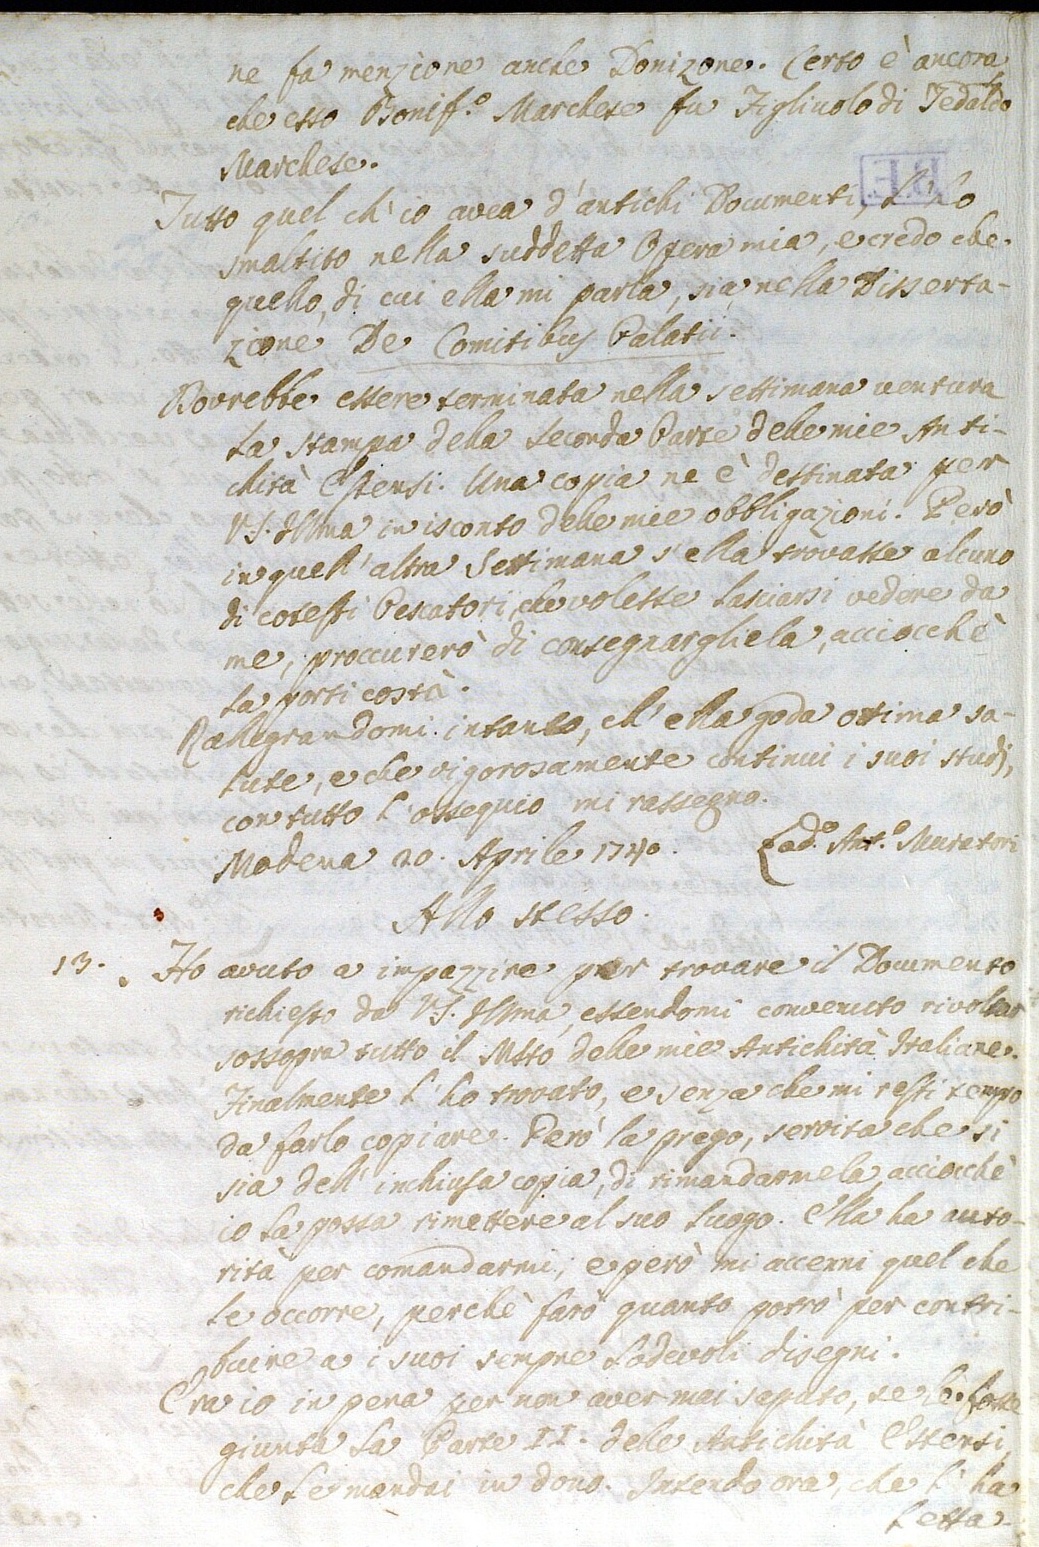 ne fa menzione anche Donizone. Certo è ancora
che esso Bonif.º Marchese fu Figliuolo di Tedaldo
Marchese.
B.E.
Tutto quel ch'io avea d'antichi Documenti, l'ho
smaltito nella suddetta Opera mia, e credo che
quello, di cui ella mi parla, sia nella Disserta-
zione De Comitibus Palatii.
Dovrebbe essere terminata nella settimana ventura
la stampa della Seconda Parte delle mie Anti-
chità Estensi. Una copia ne è destinata per
VS. Illma in isconto delle mie obbligazioni. Però
in quell'altra Settimana s'ella trovasse alcuno
di cotesti Pescatori, che volesse lasciarsi vedere da
me, proccurerò di consegnargliela, acciocchè
la porti costà.
Rallegrandomi intanto, ch'ella goda ottima sa-
lute, e che vigorosamente continui i suoi studj,
con tutto l'ossequio mi rassegno.
Modena 20. Aprile 1740. Lod.º Ant.º Muratori
Allo stesso.
13. Ho avuto a impazzire per trovare il Documento
richiesto da VS. Illma, essendomi convenuto rivoltar
sossopra tutto il MSto delle mie Antichità Italiane.
Finalmente l'ho trovato, e senza che mi resti tempo
da farlo copiare. Però la prego, servita che si
sia dell'inchiusa copia, di rimandarmela, acciocchè
io la possa rimettere al suo luogo. Ella ha auto-
rità per comandarmi; e però mi accenni quel che
le occorre, perchè farò quanto potrò per contri-
buire a i suoi sempre lodevoli disegni.
Era io in pena per non aver mai saputo, se le fosse
giunta la Parte II. delle Antichità Estensi,
che le mandai in dono. Intendo ora, che l'ha
letta.